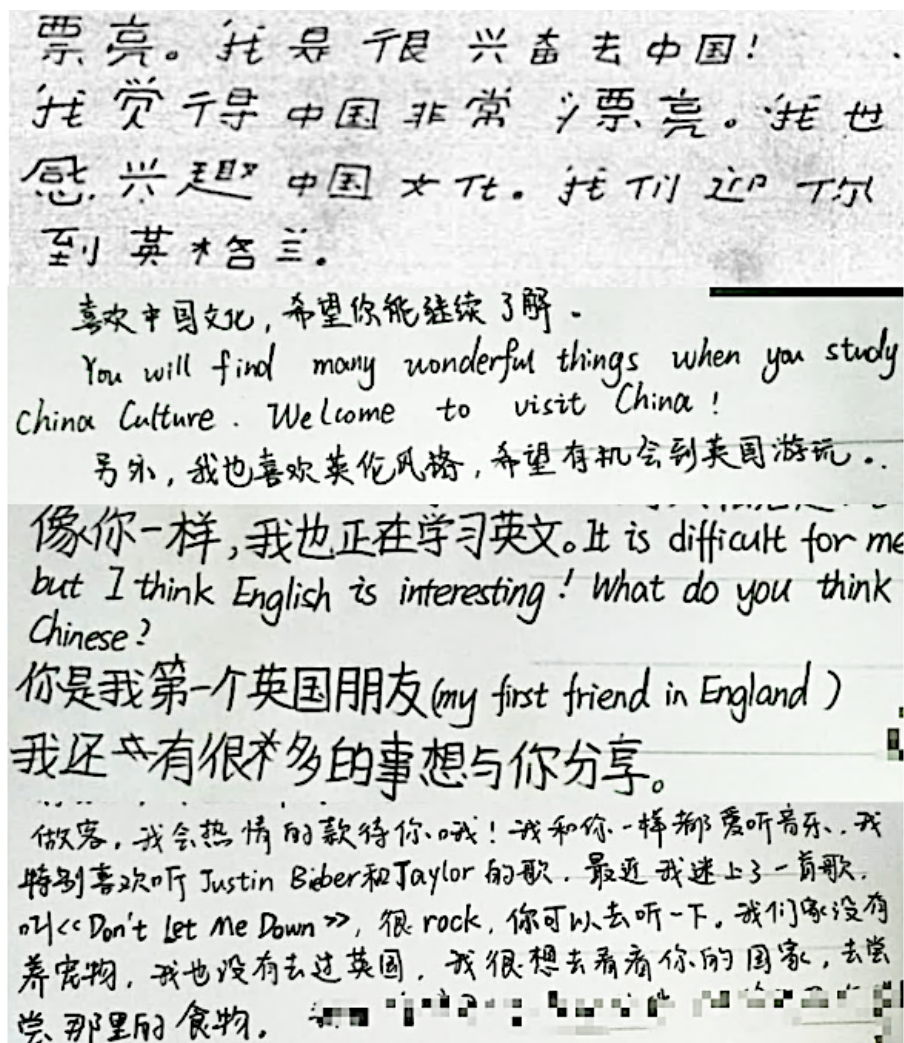 票亮。我是很兴奋去中国!
我觉得中国非常漂亮。我也
感兴趣中国文化。我们迎你
到英格兰。
喜欢中国文化,希望你能继续了解.
You will find many wonderful things when you study
China Culture. Welcome to visit China!
另外,我也喜欢英伦风格,希望有机会到英国游玩..
像你一样,我也正在学习英文。It is difficult for me
but I think English is interesting! What do you think
Chinese?
你是我第一个英国朋友(my first friend in England)
我还有很多的事想与你分享。
做客。我会热情的款待你哦!我和你一样都爱听音乐.我
特别喜欢听Justin Bieber和Taylor的歌.最近我迷上了一首歌.
叫<<Don't Let Me Down>>,很rock,你可以去听一下。我们家没有
养宠物,我也没有去过英国,我很想去看看你的国家,去尝
尝那里的食物。